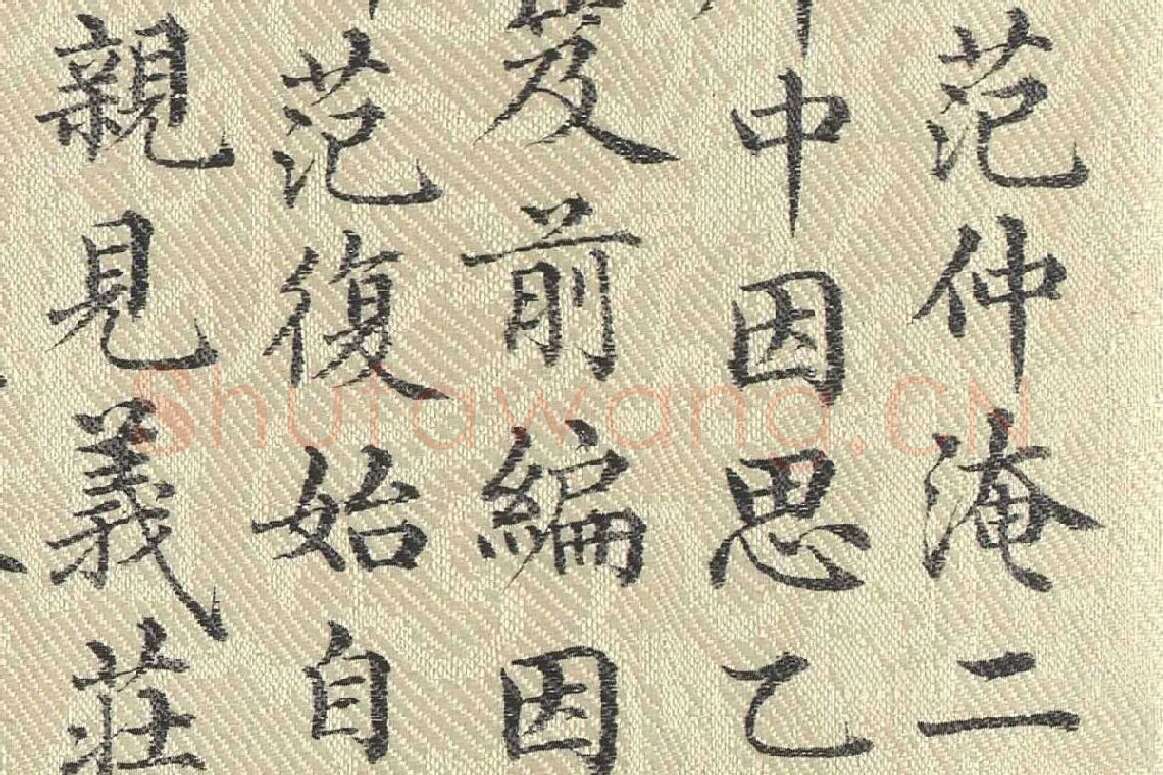 范仲淹二
中因思乙
及前編因
范復始自
親見義莊
Shufawang.CN